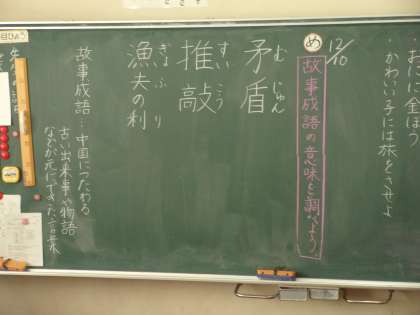 ・かわいい子には旅をさせよ
12/10
め
故事成語の意味を調べよう。
矛盾
むじゅん
推敲
すいこう
漁夫の利
ぎょふ り
故事成語…中国につたわる
古い出来事や物語
などが元にできた言葉